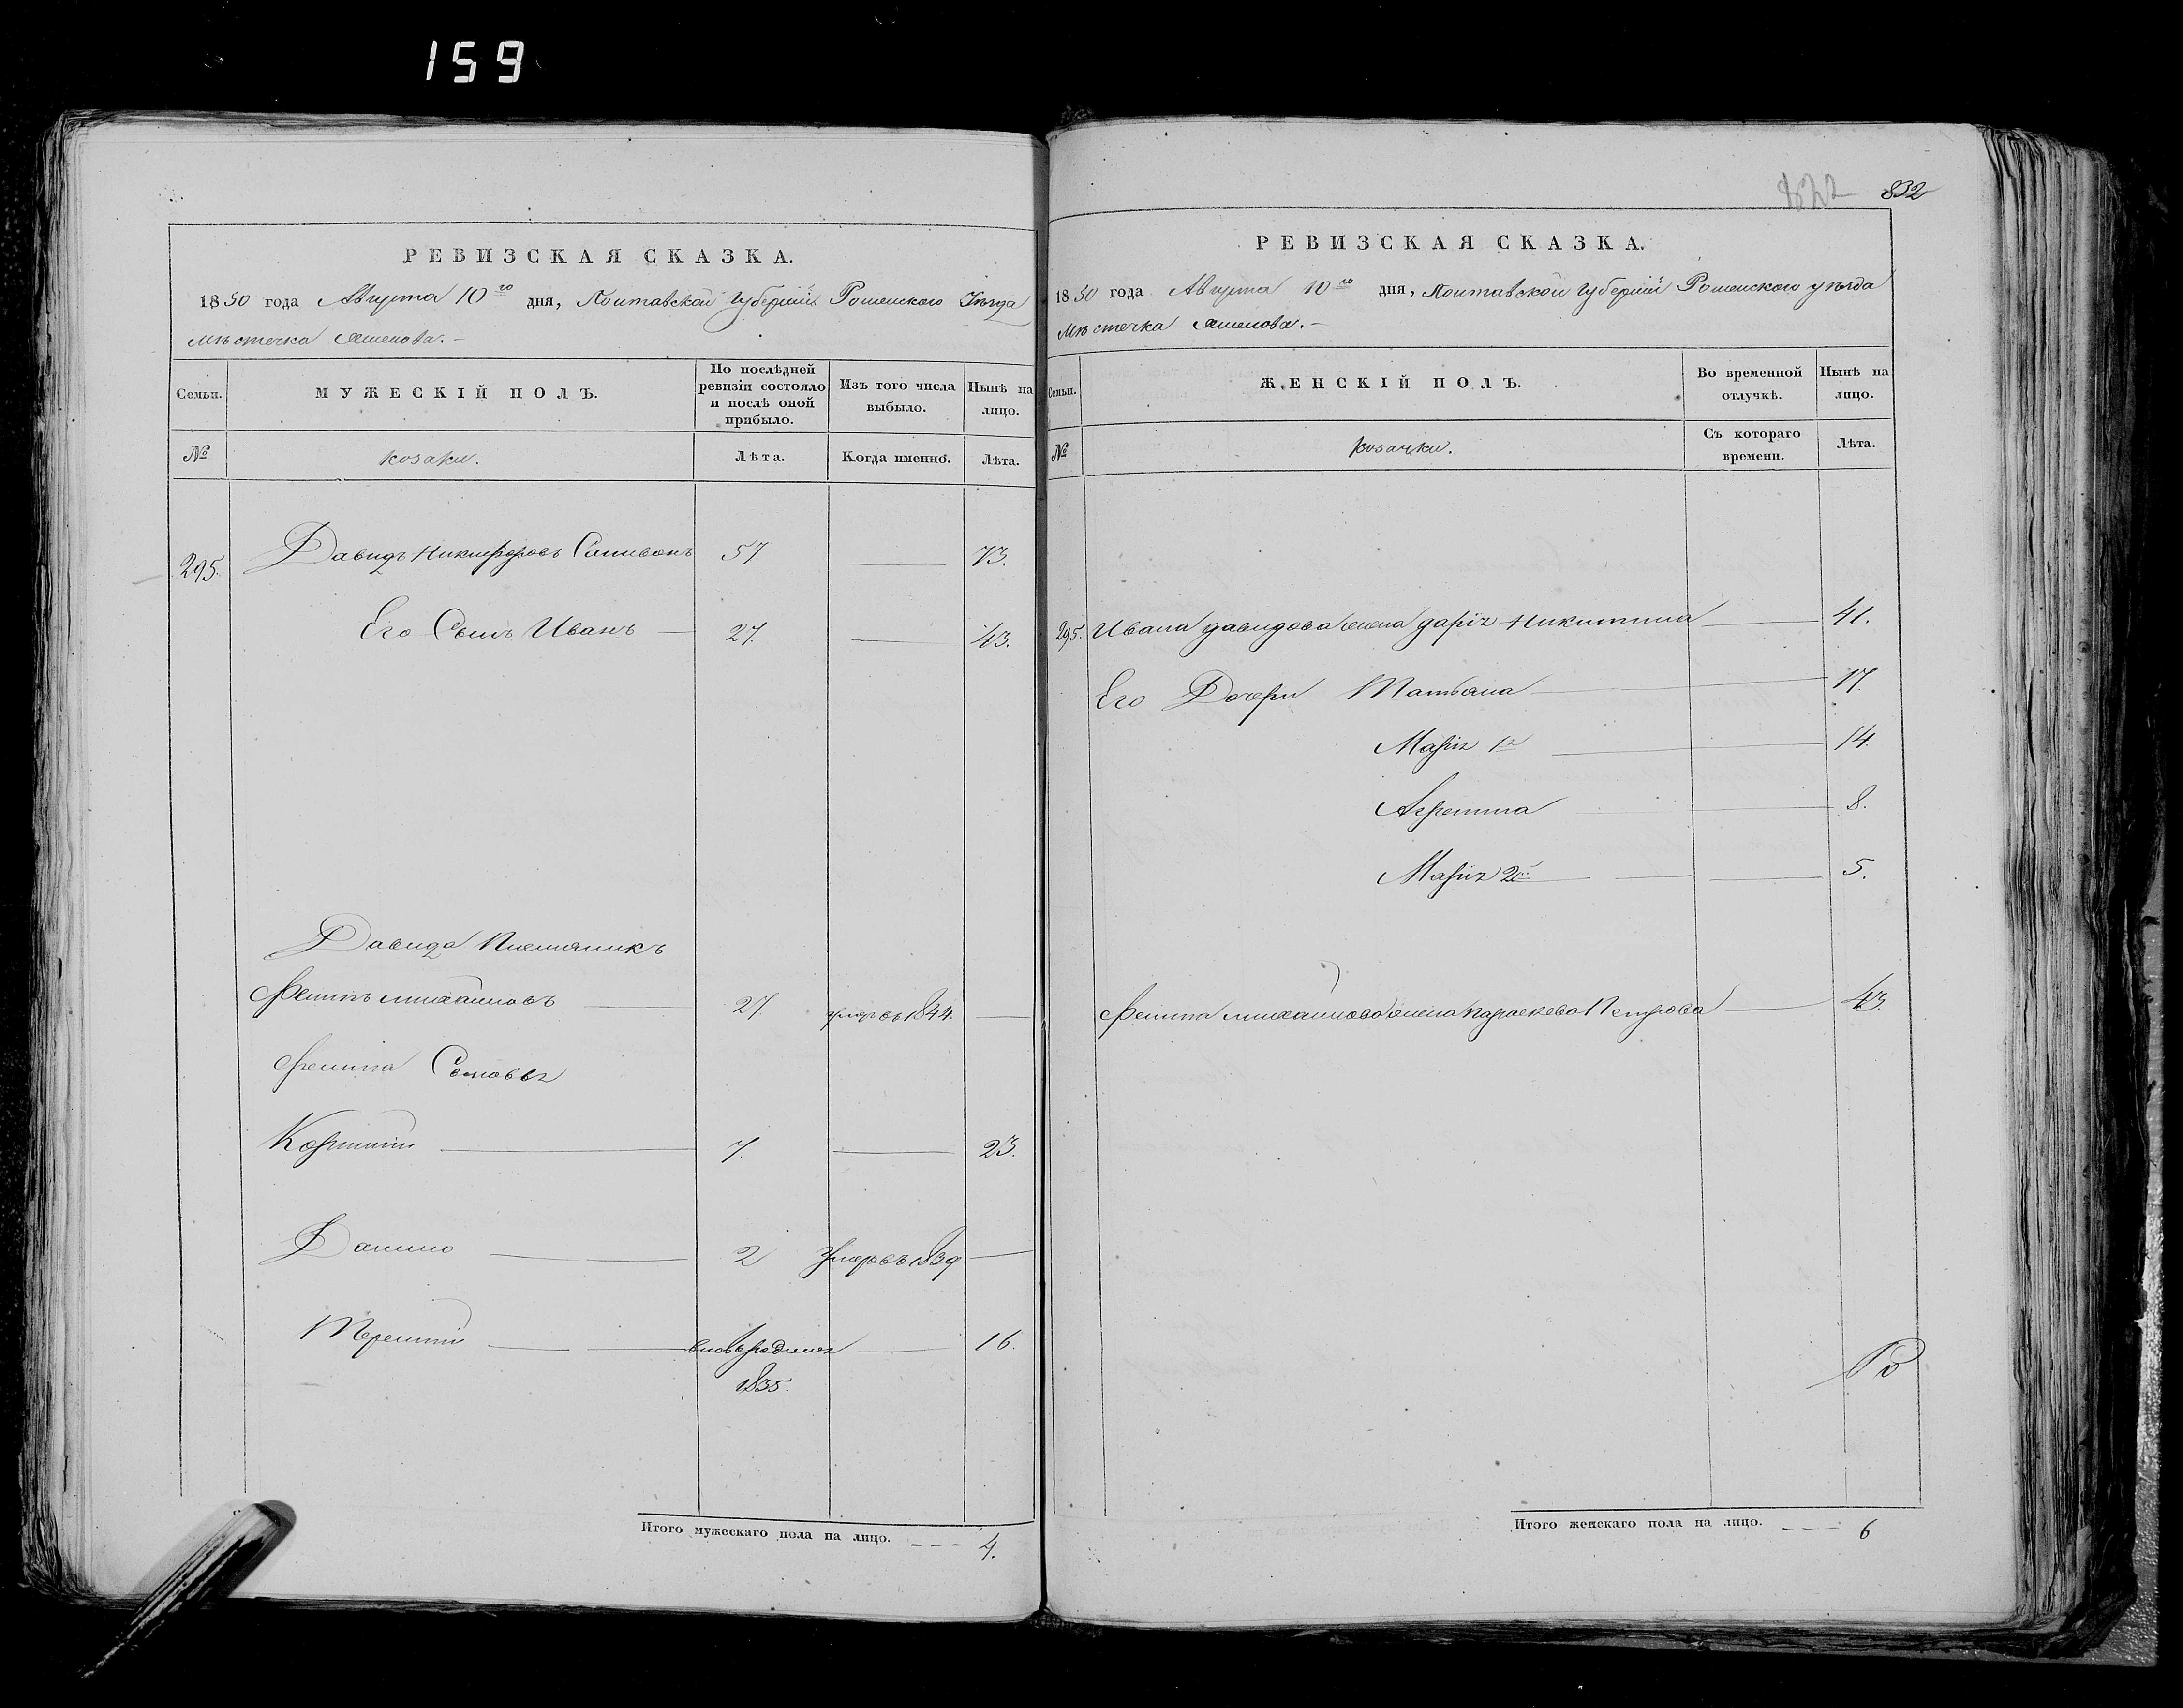 159
РЕВИЗСКАЯ СКАЗКА.
1850 года Августа 10го дня, Полтавской Губерніи Роменскаго Уѣзда
Мѣстечка
Семьи.
МУЖЕСКІЙ ПОЛЪ.
По послѣдней ревизіи состояло и послѣ оной прибыло.
Изъ того числа выбыло.
Нынѣ на лицо.
№
козаки.
Лѣта.
Когда именно.
Лѣта.
295. Давидъ Никифоровъ 57 73.
Его Сынъ Иванъ 27. 43.
Давида Племяникъ
Филипъ Михайловъ 27. умеръ въ 1844.
Филипа Сыновья
7. 23.
Данило 2 Умеръ въ 1839
Терентій вновь родился 16.
1835.
Итого мужескаго пола на лицо. 4.
822 832
РЕВИЗСКАЯ СКАЗКА.
1850 года Августа 10го дня, Полтавской Губерніи Роменскаго уѣзда
Мѣстечка
Семьи.
ЖЕНСКІЙ ПОЛЪ.
Во временной отлучкѣ.
Нынѣ на лицо.
№
козачки.
Съ котораго времени.
Лѣта.
295. Ивана Давидова жена Дарія Никитина 41.
Его Дочери Татьяна 17.
Марія 1я 14.
Агрепина 8.
Марія 2я 5.
Филипа Михайлова жена Параскева Петрова 43.
Итого женскаго пола на лицо. 6